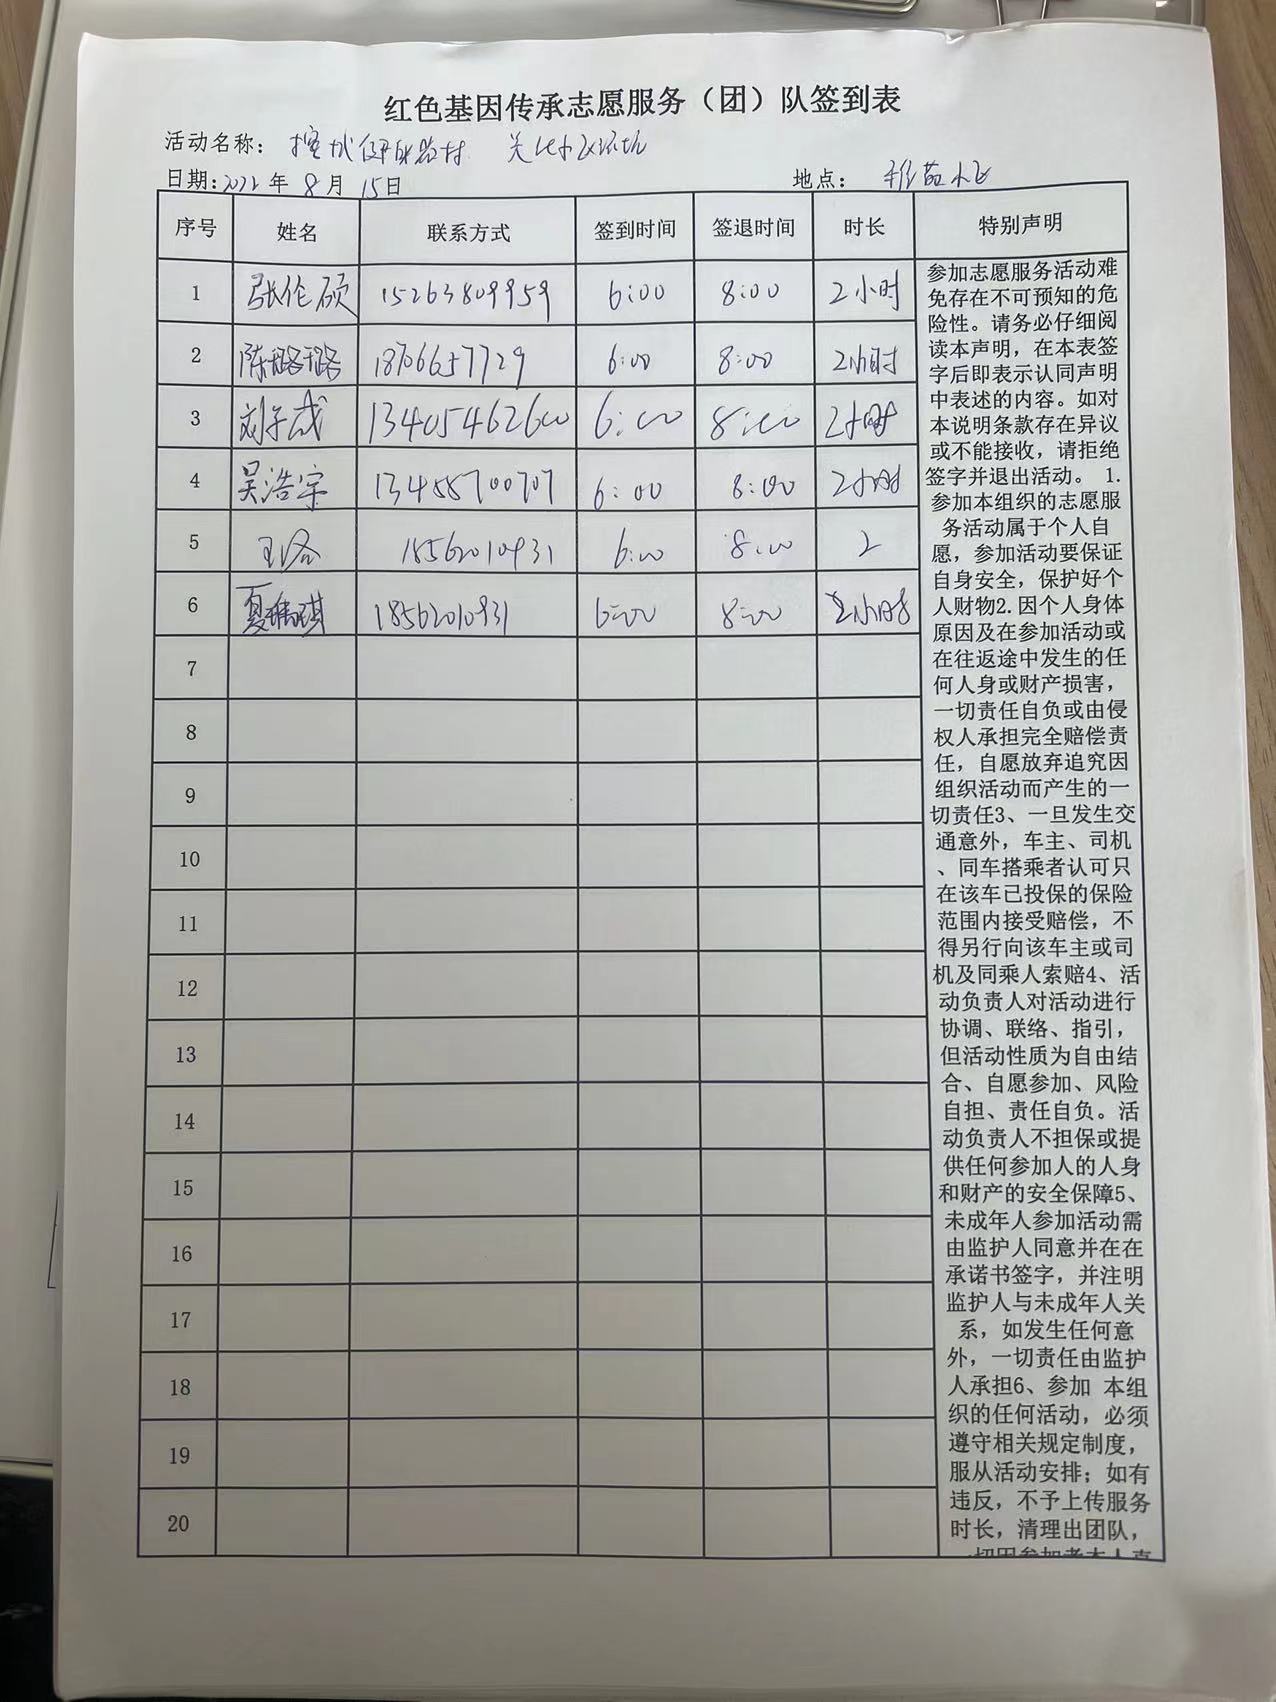 红色基因传承志愿服务（团）队签到表
活动名称：
日期：2022年 8月 15日 地点：
序号 姓名 联系方式 签到时间 签退时间 时长 特别声明
1 张伦硕 15263809959 6:00 8:00 2小时
2 陈璐璐 18766657729 6:00 8:00 2小时
3 刘子成 13405462600 6:00 8:00 2小时
4 吴浩宇 13455700707 6:00 8:00 2小时
5 18562010931 6:00 8:00 2
6 夏瑞琪 18562010931 6:00 8:00 2小时
7
8
9
10
11
12
13
14
15
16
17
18
19
20
参加志愿服务活动难
免存在不可预知的危
险性。请务必仔细阅
读本声明，在本表签
字后即表示认同声明
中表述的内容。如对
本说明条款存在异议
或不能接收，请拒绝
签字并退出活动。 1.
参加本组织的志愿服
务活动属于个人自
愿，参加活动要保证
自身安全，保护好个
人财物2.因个人身体
原因及在参加活动或
在往返途中发生的任
何人身或财产损害，
一切责任自负或由侵
权人承担完全赔偿责
任，自愿放弃追究因
组织活动而产生的一
切责任3、一旦发生交
通意外，车主、司机
、同车搭乘者认可只
在该车已投保的保险
范围内接受赔偿，不
得另行向该车主或司
机及同乘人索赔4、活
动负责人对活动进行
协调、联络、指引，
但活动性质为自由结
合、自愿参加、风险
自担、责任自负。活
动负责人不担保或提
供任何参加人的人身
和财产的安全保障5、
未成年人参加活动需
由监护人同意并在在
承诺书签字，并注明
监护人与未成年人关
系，如发生任何意
外，一切责任由监护
人承担6、参加 本组
织的任何活动，必须
遵守相关规定制度，
服从活动安排；如有
违反，不予上传服务
时长，清理出团队，